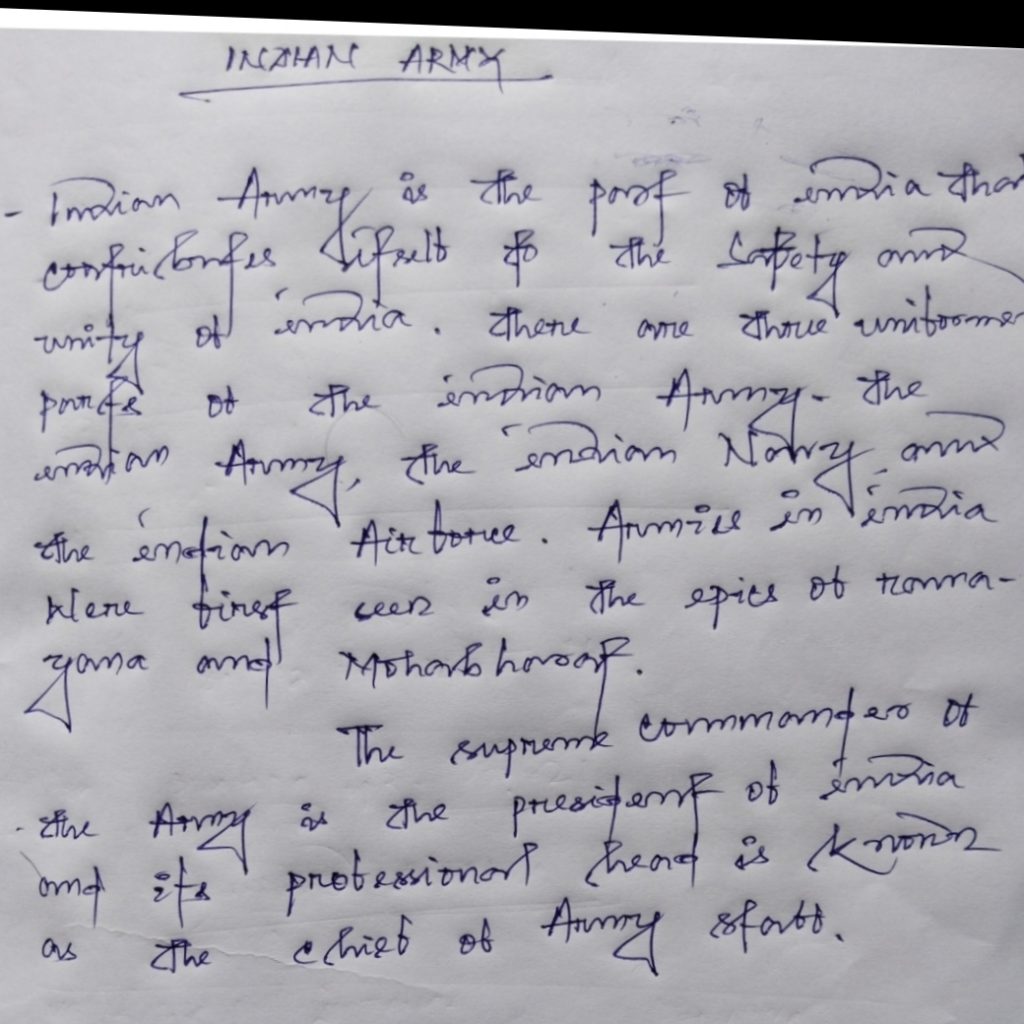 INDIAN ARMY
- Indian Army is the part of india that
contributes itself to the Safety and
unity of india. there are three uniforme
parts of the indian Army - the
indian Army, the indian Navy and
the indian Air force. Armies in india
Were first seen in the epics of rama-
yana and Mohabharat.
The supreme commander of
the Army is the president of india
and its professional head is known
as the chief of Army staff.